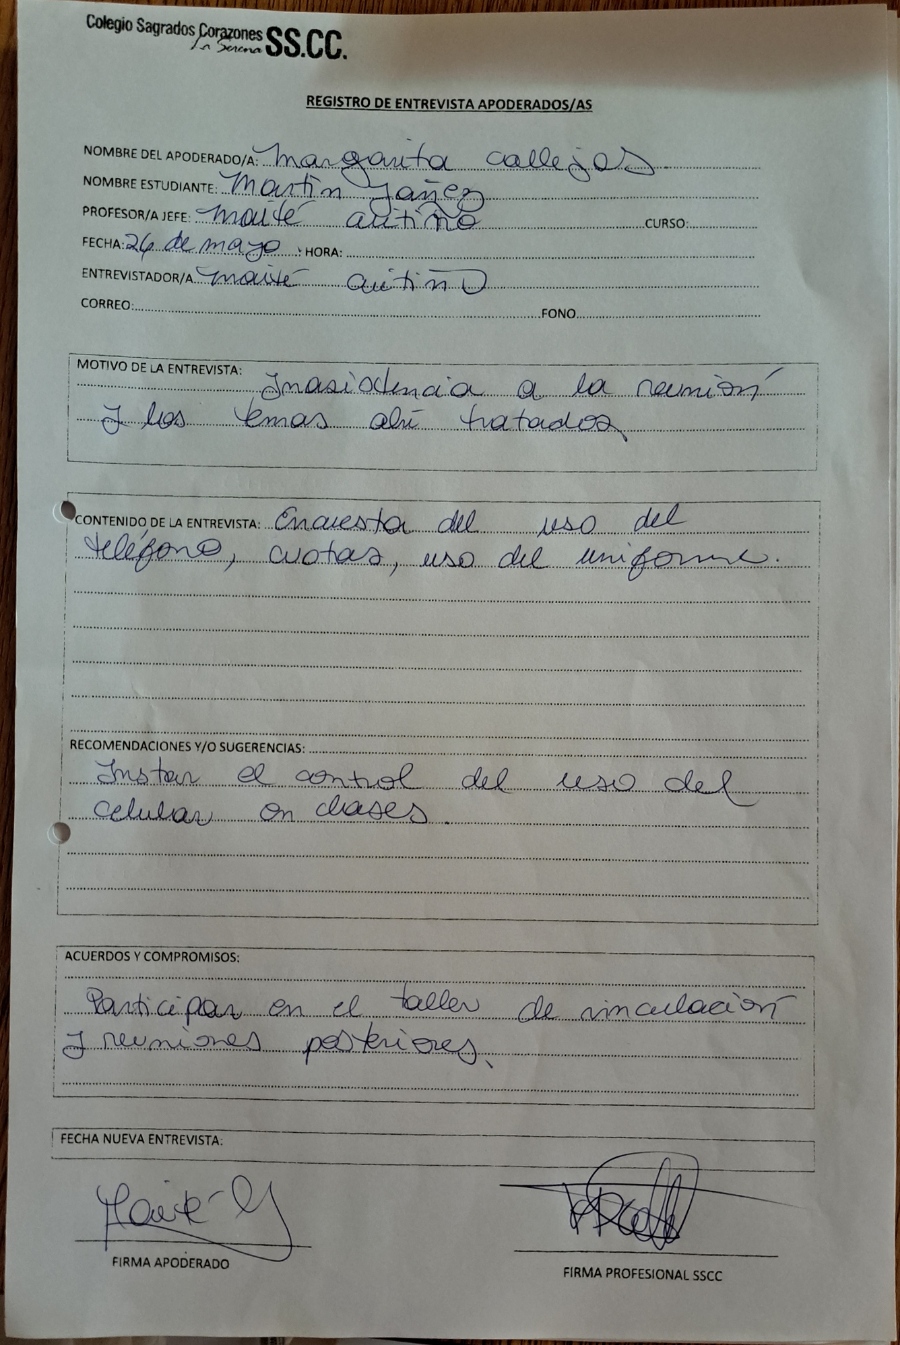 Colegio Sagrados Corazones SS.CC.
La Serena
REGISTRO DE ENTREVISTA APODERADOS/AS
NOMBRE DEL APODERADO/A: Margarita Callejas
NOMBRE ESTUDIANTE: Martín Yañez
PROFESOR/A JEFE: Maité CURSO:
FECHA: 26 de mayo HORA:
ENTREVISTADOR/A Maité
CORREO: FONO
MOTIVO DE LA ENTREVISTA: Inasistencia a la reunión
y los temas ahí tratados.
CONTENIDO DE LA ENTREVISTA: Encuesta del uso del
teléfono, cuotas, uso del uniforme.
RECOMENDACIONES Y/O SUGERENCIAS:
Instar el control del uso del
celular en clases.
ACUERDOS Y COMPROMISOS:
Participar en el taller de vinculación
y reuniones posteriores.
FECHA NUEVA ENTREVISTA:
FIRMA APODERADO
FIRMA PROFESIONAL SSCC